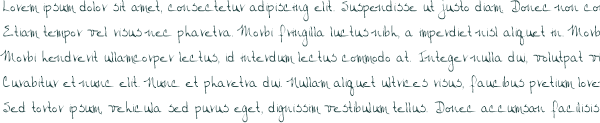 Lorem ipsum dolor sit amet, consectetur adipiscing elit. Suspendisse ut justo diam. Donec non con
Etiam tempor vel risus nec pharetra. Morbi fringilla luctus nibh, a imperdiet nisl aliquet in. Morb
Morbi hendrerit ullamcorper lectus, id interdum lectus commodo at. Integer nulla dui, volutpat vi
Curabitur et nunc elit. Nunc et pharetra dui. Nullam aliquet ultrices risus, faucibus pretium lore
Sed tortor ipsum, vehicula sed purus eget, dignissim vestibulum tellus. Donec accumsan facilisis